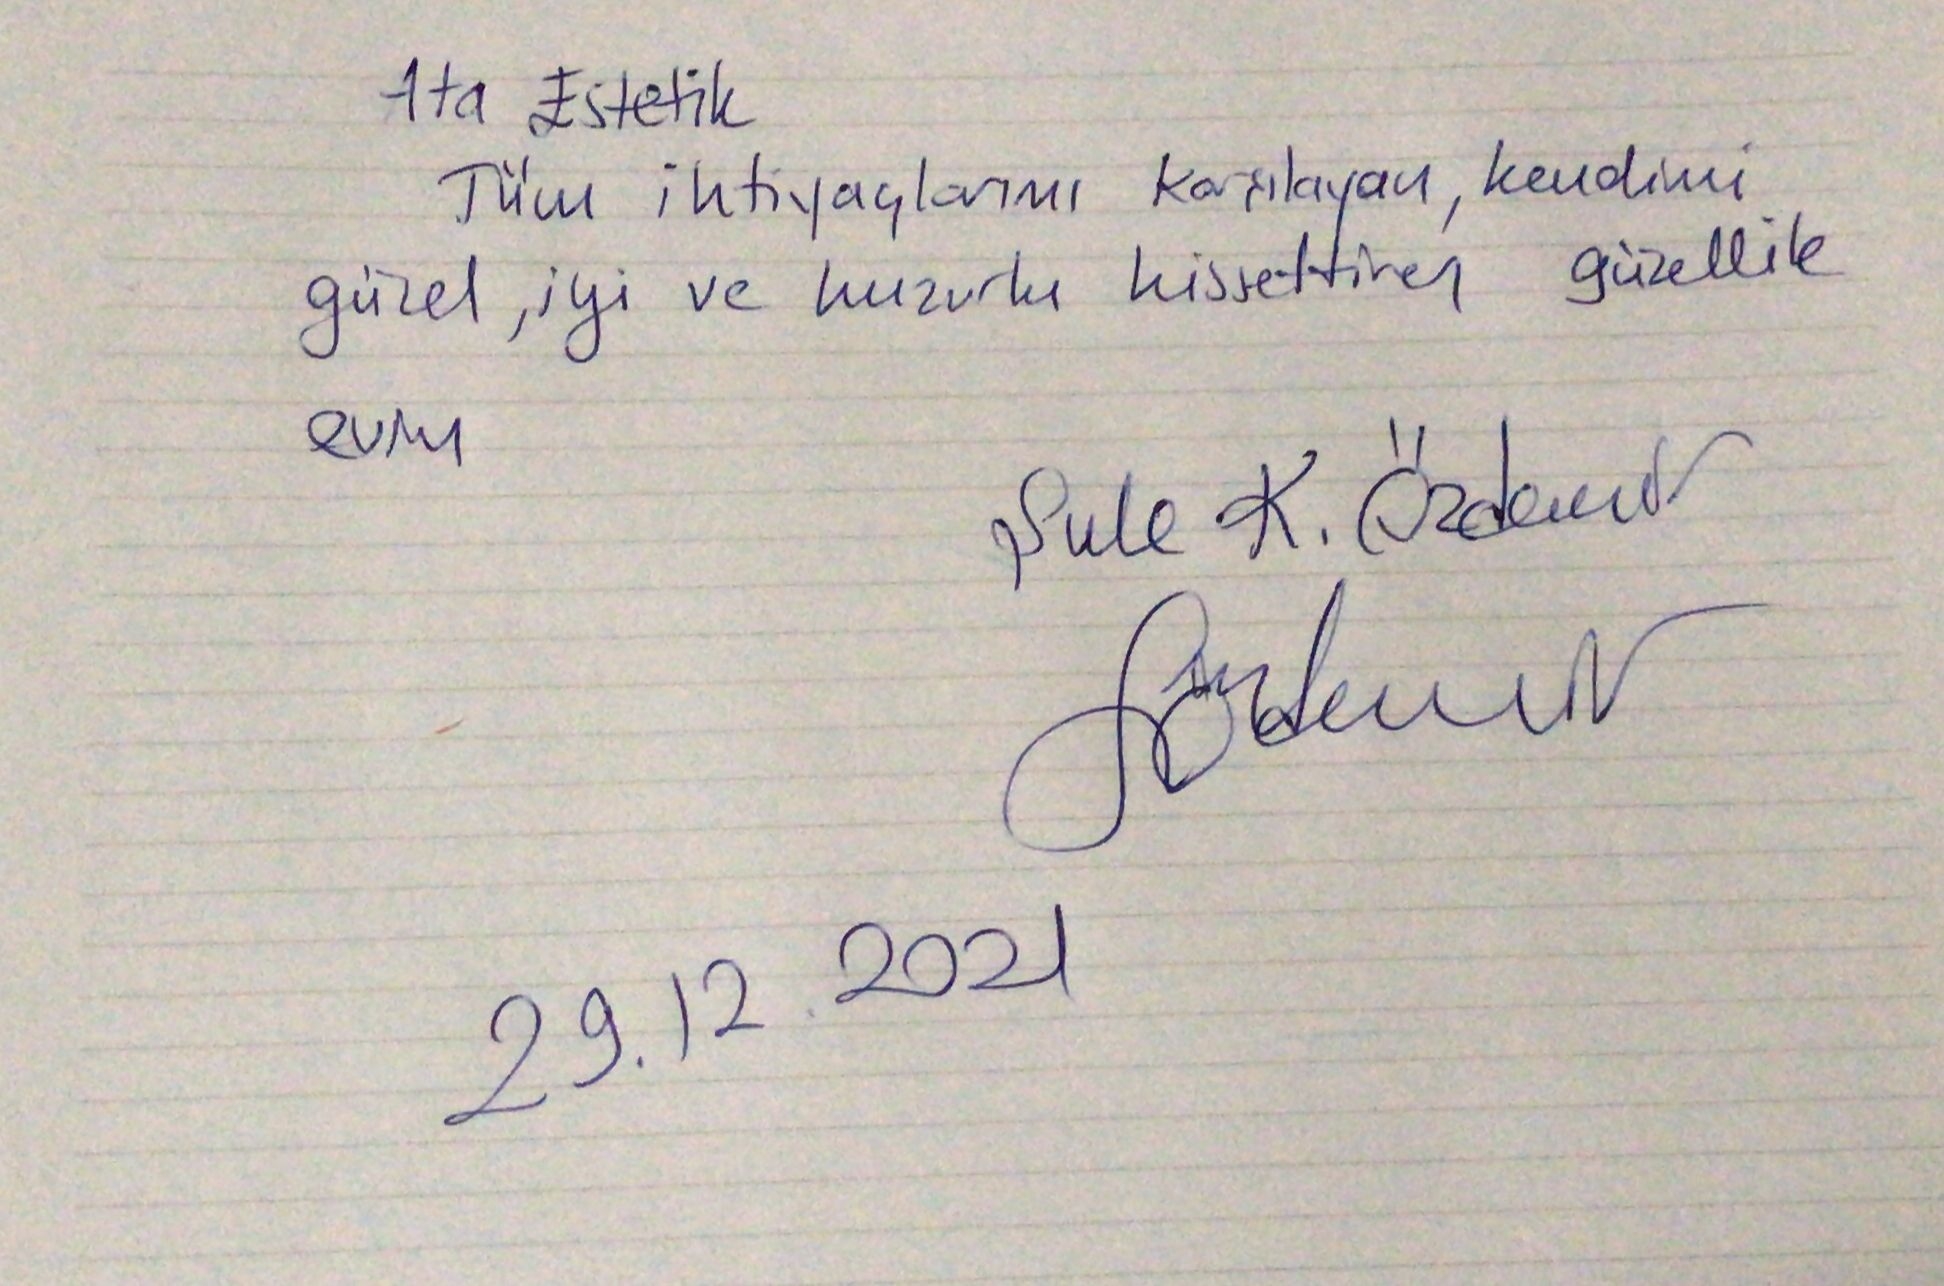 Ata Estetik
Tüm ihtiyaçlarımı karşılayan, kendimi
güzel, iyi ve huzurlu hissettiren güzellik
evim
Şule K. Özdemir
SÖzdemir
29.12.2021